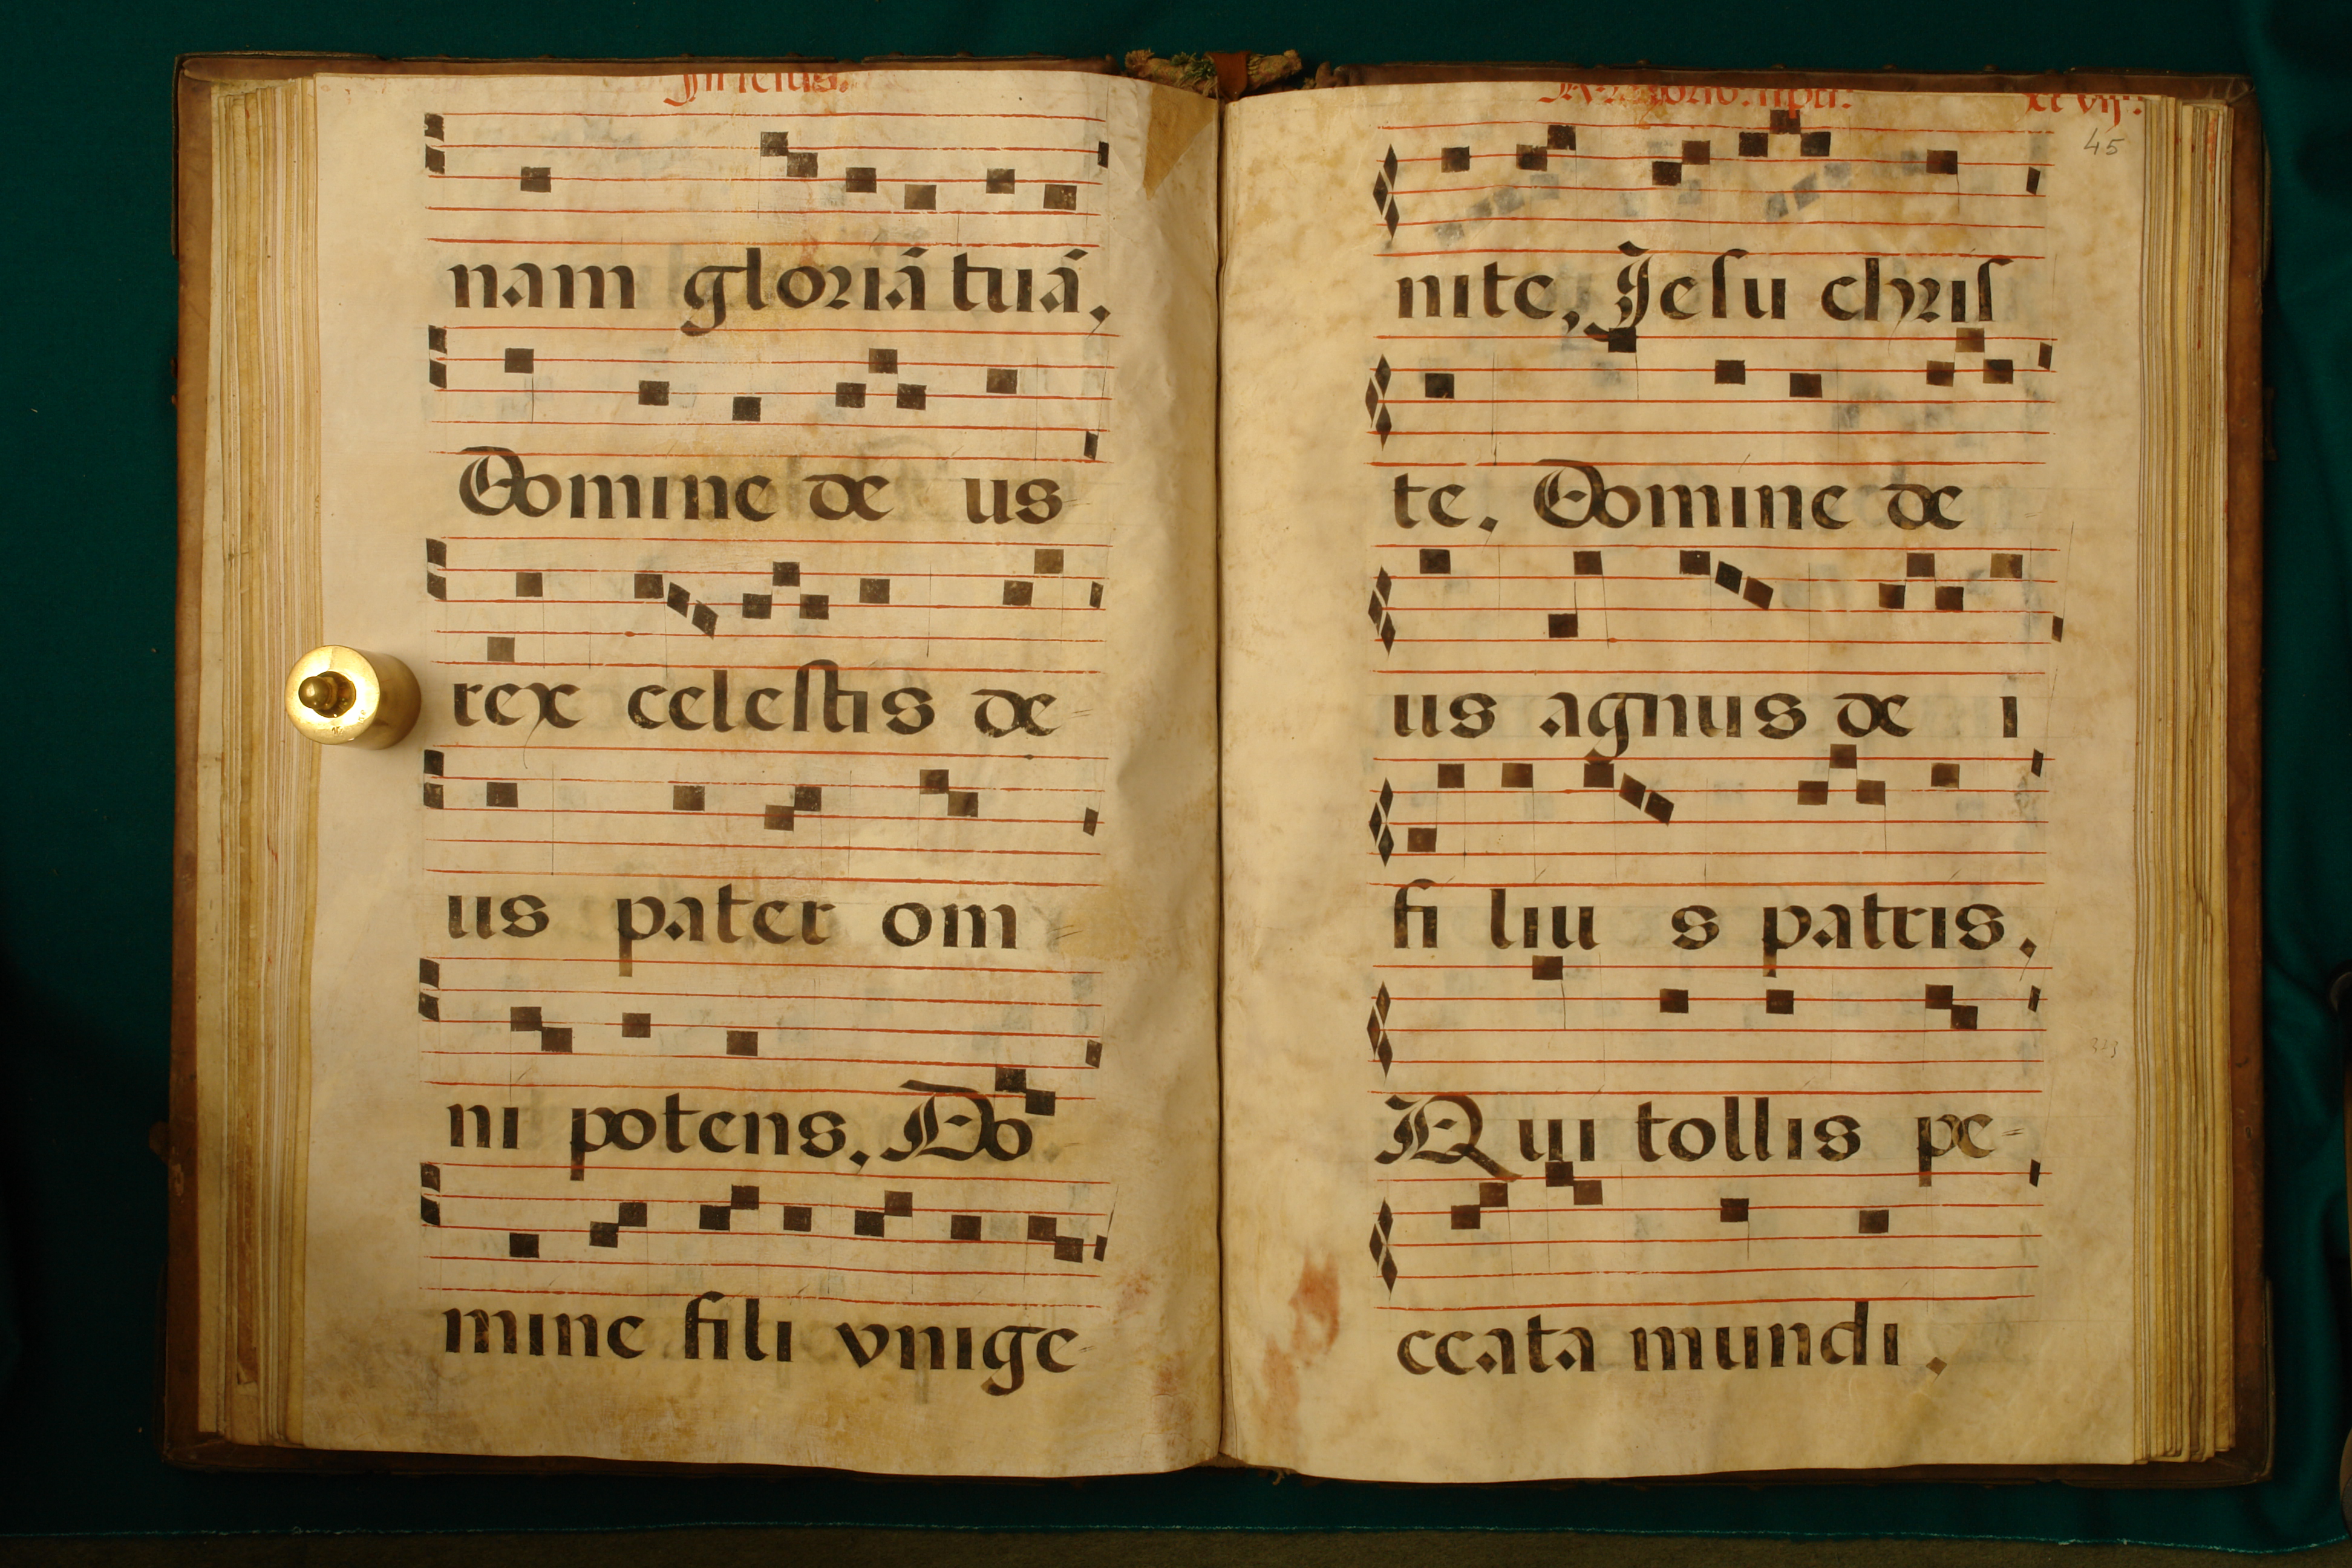 nam gloriā tuā,
Domine de us
rex celestis de-
us pater om=
ni potens, Do
mine fili vnige-
45
nite, Jesu chris
te. Domine de
us agnus de i
fi liu s patris,
Qui tollis pe=
ccata mundi.